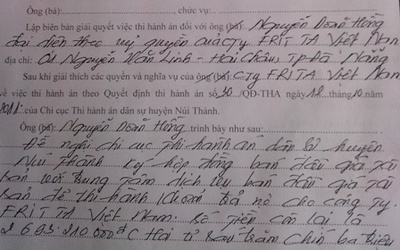 Ông (bà): chức vụ:
Lập biên bản giải quyết việc thi hành án đối với ông (bà): Nguyễn Doãn Hồng
đại diện theo uỷ quyền của cty FRIT TA Việt Nam
địa chỉ: Nguyễn Văn Linh - Hải Châu TP Đà Nẵng
Sau khi giải thích các quyền và nghĩa vụ của ông (bà) Cty FRITA Việt Nam
về việc thi hành án theo Quyết định thi hành án số 30 /QĐ-THA ngày 12 tháng 10 năm
2011 của Chi cục Thi hành án dân sự huyện Núi Thành.
Ông (bà) Nguyễn Doãn Hồng trình bày như sau:
Đề nghị chi cục thi hành án dân sự huyện
Núi Thành ký hợp đồng bán đấu giá tài
sản với trung tâm dịch vụ bán đấu giá tài
sản để thi hành khoản trả nợ cho công ty
FRITA Việt Nam. Số tiền còn lại là
2 693.210.000đ (Hai tỉ sáu trăm chín ba triệu